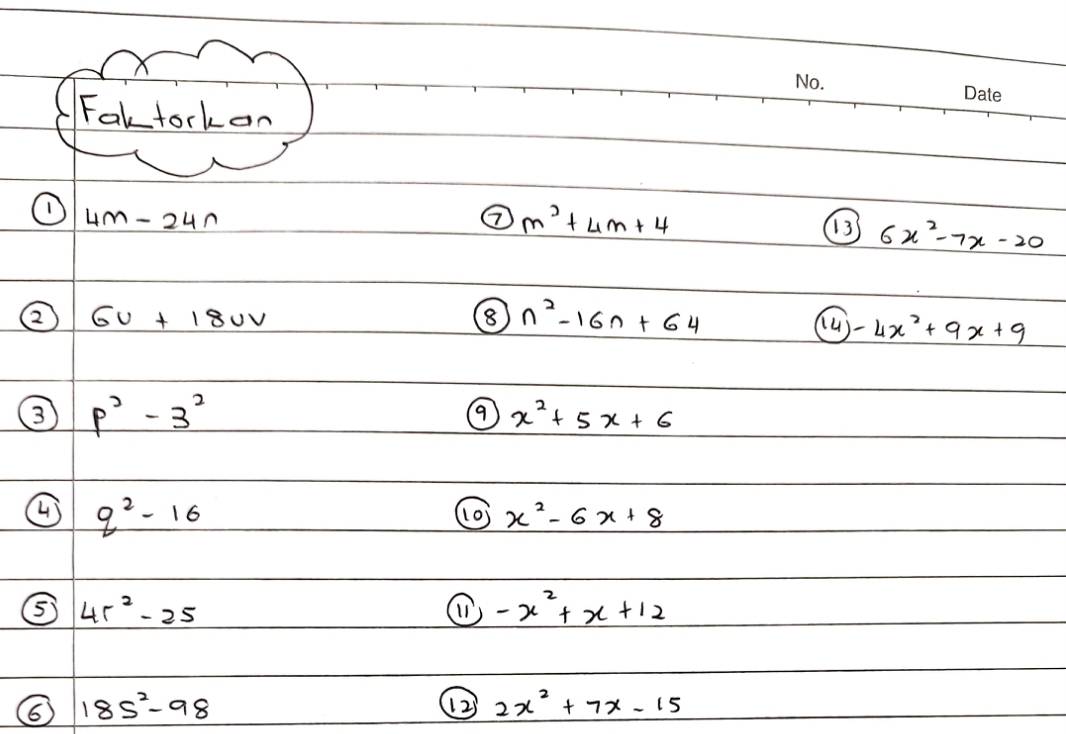 No.
Date
Faktorkan
① 4m - 24n
② 6u + 18uv
③ p² - 3²
④ q² - 16
⑤ 4r² - 25
⑥ 18s² - 98
⑦ m² + 4m + 4
⑧ n² - 16n + 64
⑨ x² + 5x + 6
⑩ x² - 6x + 8
⑪ -x² + x + 12
⑫ 2x² + 7x - 15
⑬ 6x² - 7x - 20
⑭ -4x² + 9x + 9